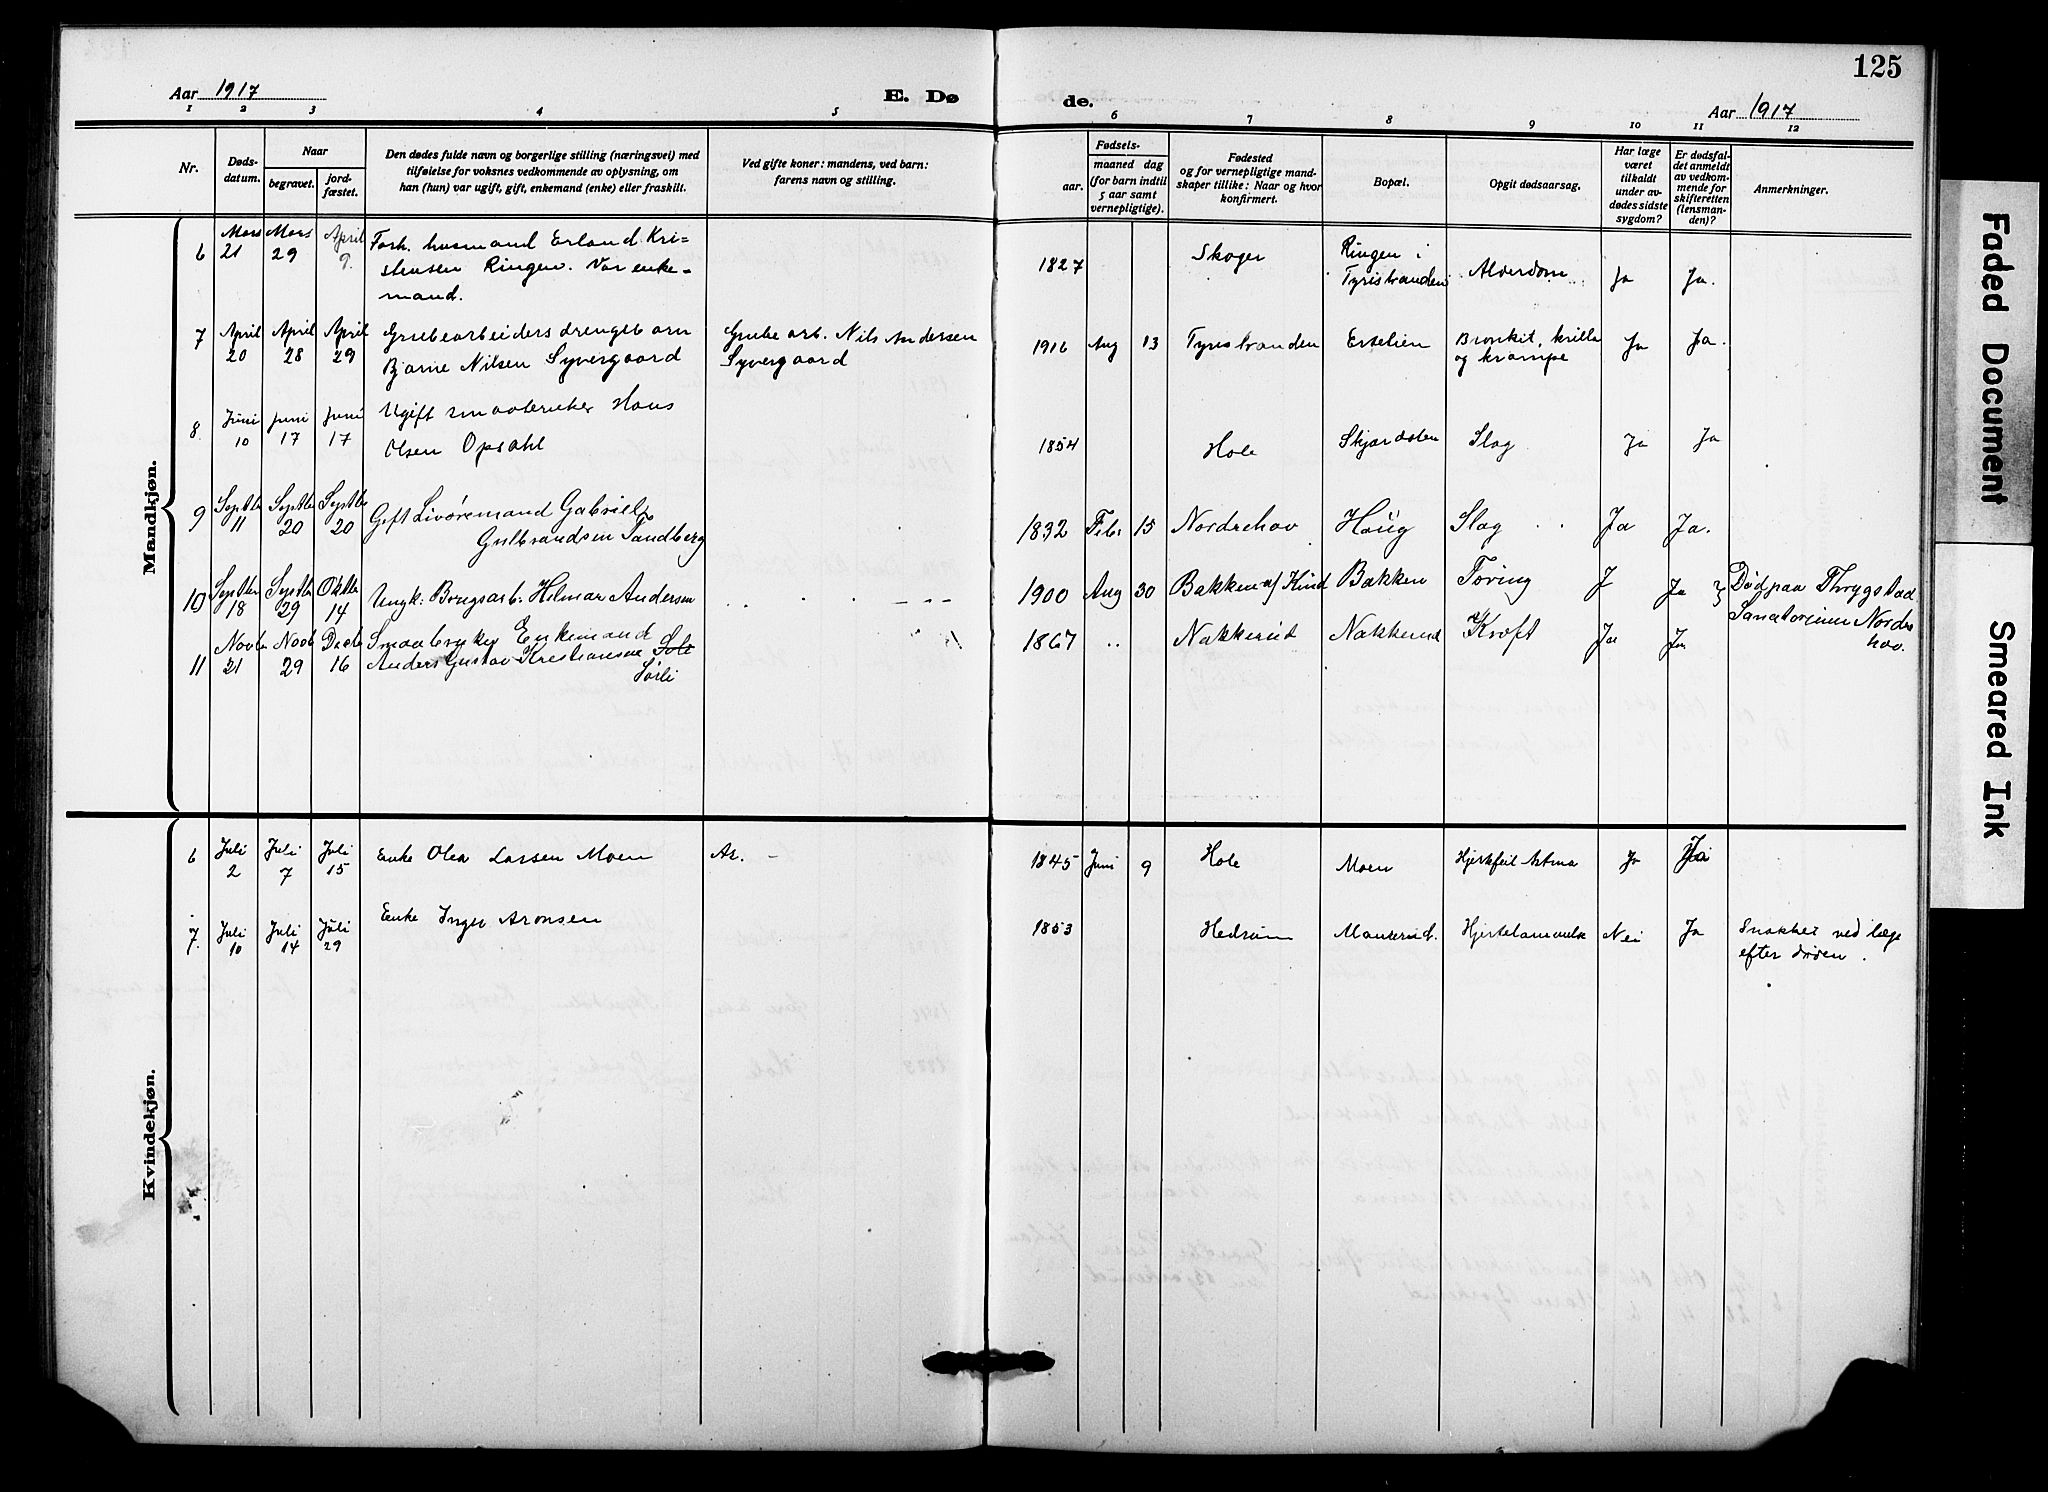 125
Aar 1917
E. Dø
de.
Aar 1917
1 2 3 4 5 6 7 8 9 10 11 12
Nr.
Døds-
datum.
Naar
begravet.
jord-
fæstet.
Den dødes fulde navn og borgerlige stilling (næringsvei) med
tilføielse for voksnes vedkommende av oplysning, om
han (hun) var ugift, gift, enkemand (enke) eller fraskilt.
Ved gifte koner: mandens, ved barn:
farens navn og stilling.
Fødsels-
aar.
maaned dag
(for barn indtil
5 aar samt
vernepligtige).
Fødested
og for vernepligtige mand-
skaper tillike: Naar og hvor
konfirmert.
Bopæl.
Opgit dødsaarsag.
Har læge
været
tilkaldt
under av-
dødes sidste
sygdom?
Er dødsfal-
det anmeldt
av vedkom-
mende for
skifteretten
(lensman-
den)?
Anmerkninger.
Mandkjøn.
6
Mars
21
Mars
29
April
9.
Forh. husmand Erland Kri-
stensen Ringen. Var enke-
mand.
1827
Skoger
Ringen i
Tyristranden
Alderdom
Ja
Ja.
7
April
20
April
28
April
29
Grubearbeiders drengebarn
Bjarne Nilsen Syvergaard
Grubearb. Nils Andersen
Syvergaard
1916
Aug
13
Tyristranden
Ertelien
Bronkit, krilla
og krampe
Ja
Ja.
8
Juni
10
Juni
17
Juni
17
Ugift smaabruker Hans
Olsen Opsahl
1854
Hole
Skjærdalen
Slag
Ja
Ja
9
Septbr
11
Septbr
20
Septbr
20
Gift Livøremand Gabriel
Gulbrandsen Tandberg
1832
Febr
15
Nordrehov
Haug
Slag
Ja
Ja.
10
Septbr
18
Septbr
29
Oktbr
14
Ungk: Brugsarb: Hilmar Andersen
1900
Aug
30
Bakken af Hind
Bakken
Tæring
J
Ja
Død paa Thrygstad
Sanatorium Nordre
hov.
11
Novbr
21
Novb
29
Decbr
16
Smaabruker Enkemand
Anders Gustav Kristiansen Sole
Sørli
1867
Nakkerud
Nakkerud
Kræft
Ja
Ja
Kvindekjøn.
6
Juli
2
Juli
7
Juli
15
Enke Olea Larsen Moen
Ar. -
1845
Juni
9
Hole
Moen
Hjertfeil Astma
Ja
Ja
7.
Juli
10
Juli
14
Juli
29
Enke Inger Aronsen
1853
Hedrum
Hjertelammelse
Nei
Ja
Snakket ved læge
efter døden.
Faded Document
Smeared Ink